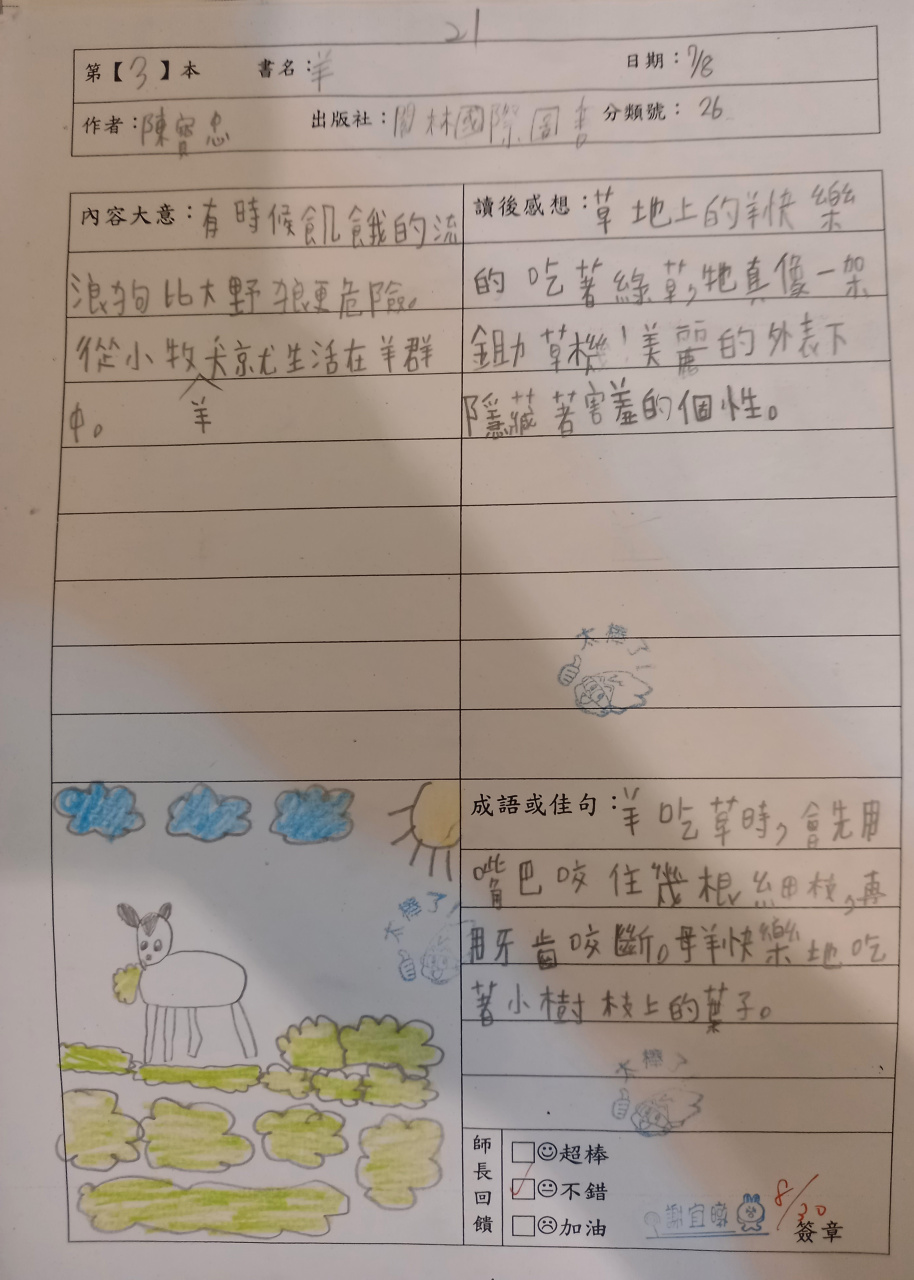 21
第【3】本 書名：羊 日期：7/8
作者：陳寶忠 出版社：閣林國際圖書 分類號：26
內容大意：有時候飢餓的流
浪狗比大野狼更危險。
從小牧犬就生活在羊群
羊
中。
讀後感想：草地上的羊快樂
的吃著綠草，牠真像一架
鋤草機！美麗的外表下
隱藏著害羞的個性。
太棒了！
太棒了！
成語或佳句：羊吃草時，會先用
嘴巴咬住幾根細枝，再
用牙齒咬斷。母羊快樂地吃
著小樹枝上的葉子。
太棒了
師長回饋
超棒
不錯
加油
8/30
簽章